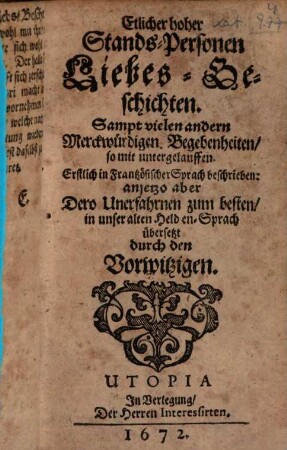 Etlicher hoher
Stands-Personen
Liebes-Ge-
schichten.
Sampt vielen andern
Merckwürdigen Begebenheiten/
so mit untergelauffen.
Erstlich in Frantzösischer Sprach beschrieben:
anjetzo aber
Dero Unerfahrnen zum besten/
in unser alten Helden-Sprach
übersetzt
durch den
Vorwitzigen.
UTOPIA
In Verlegung/
Der Herren Interessirten.
1672.